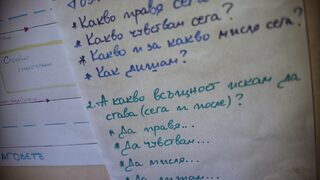 *Какво правя сега?
*Какво чувствам сега?
*Какво и за какво мисля сега?
*Как дишам?
2. А какво всъщност искам да
става (сега и после)?
*Да правя...
*Да чувствам...
*Да мисля...
*Да дишам...